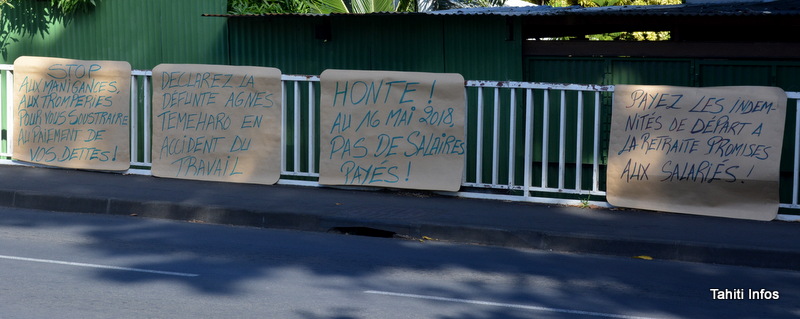 STOP
AUX MANIGANCES,
AUX TROMPERIES
POUR VOUS SOUSTRAIRE
AU PAIEMENT DE
VOS DETTES !
DECLAREZ LA
DEFUNTE AGNES
TEMEHARO EN
ACCIDENT DU
TRAVAIL
HONTE !
AU 16 MAI 2018,
PAS DE SALAIRES
PAYÉS !
PAYEZ LES INDEM-
NITÉS DE DÉPART A
LA RETRAITE PROMISES
AUX SALARIÉS !
Tahiti Infos